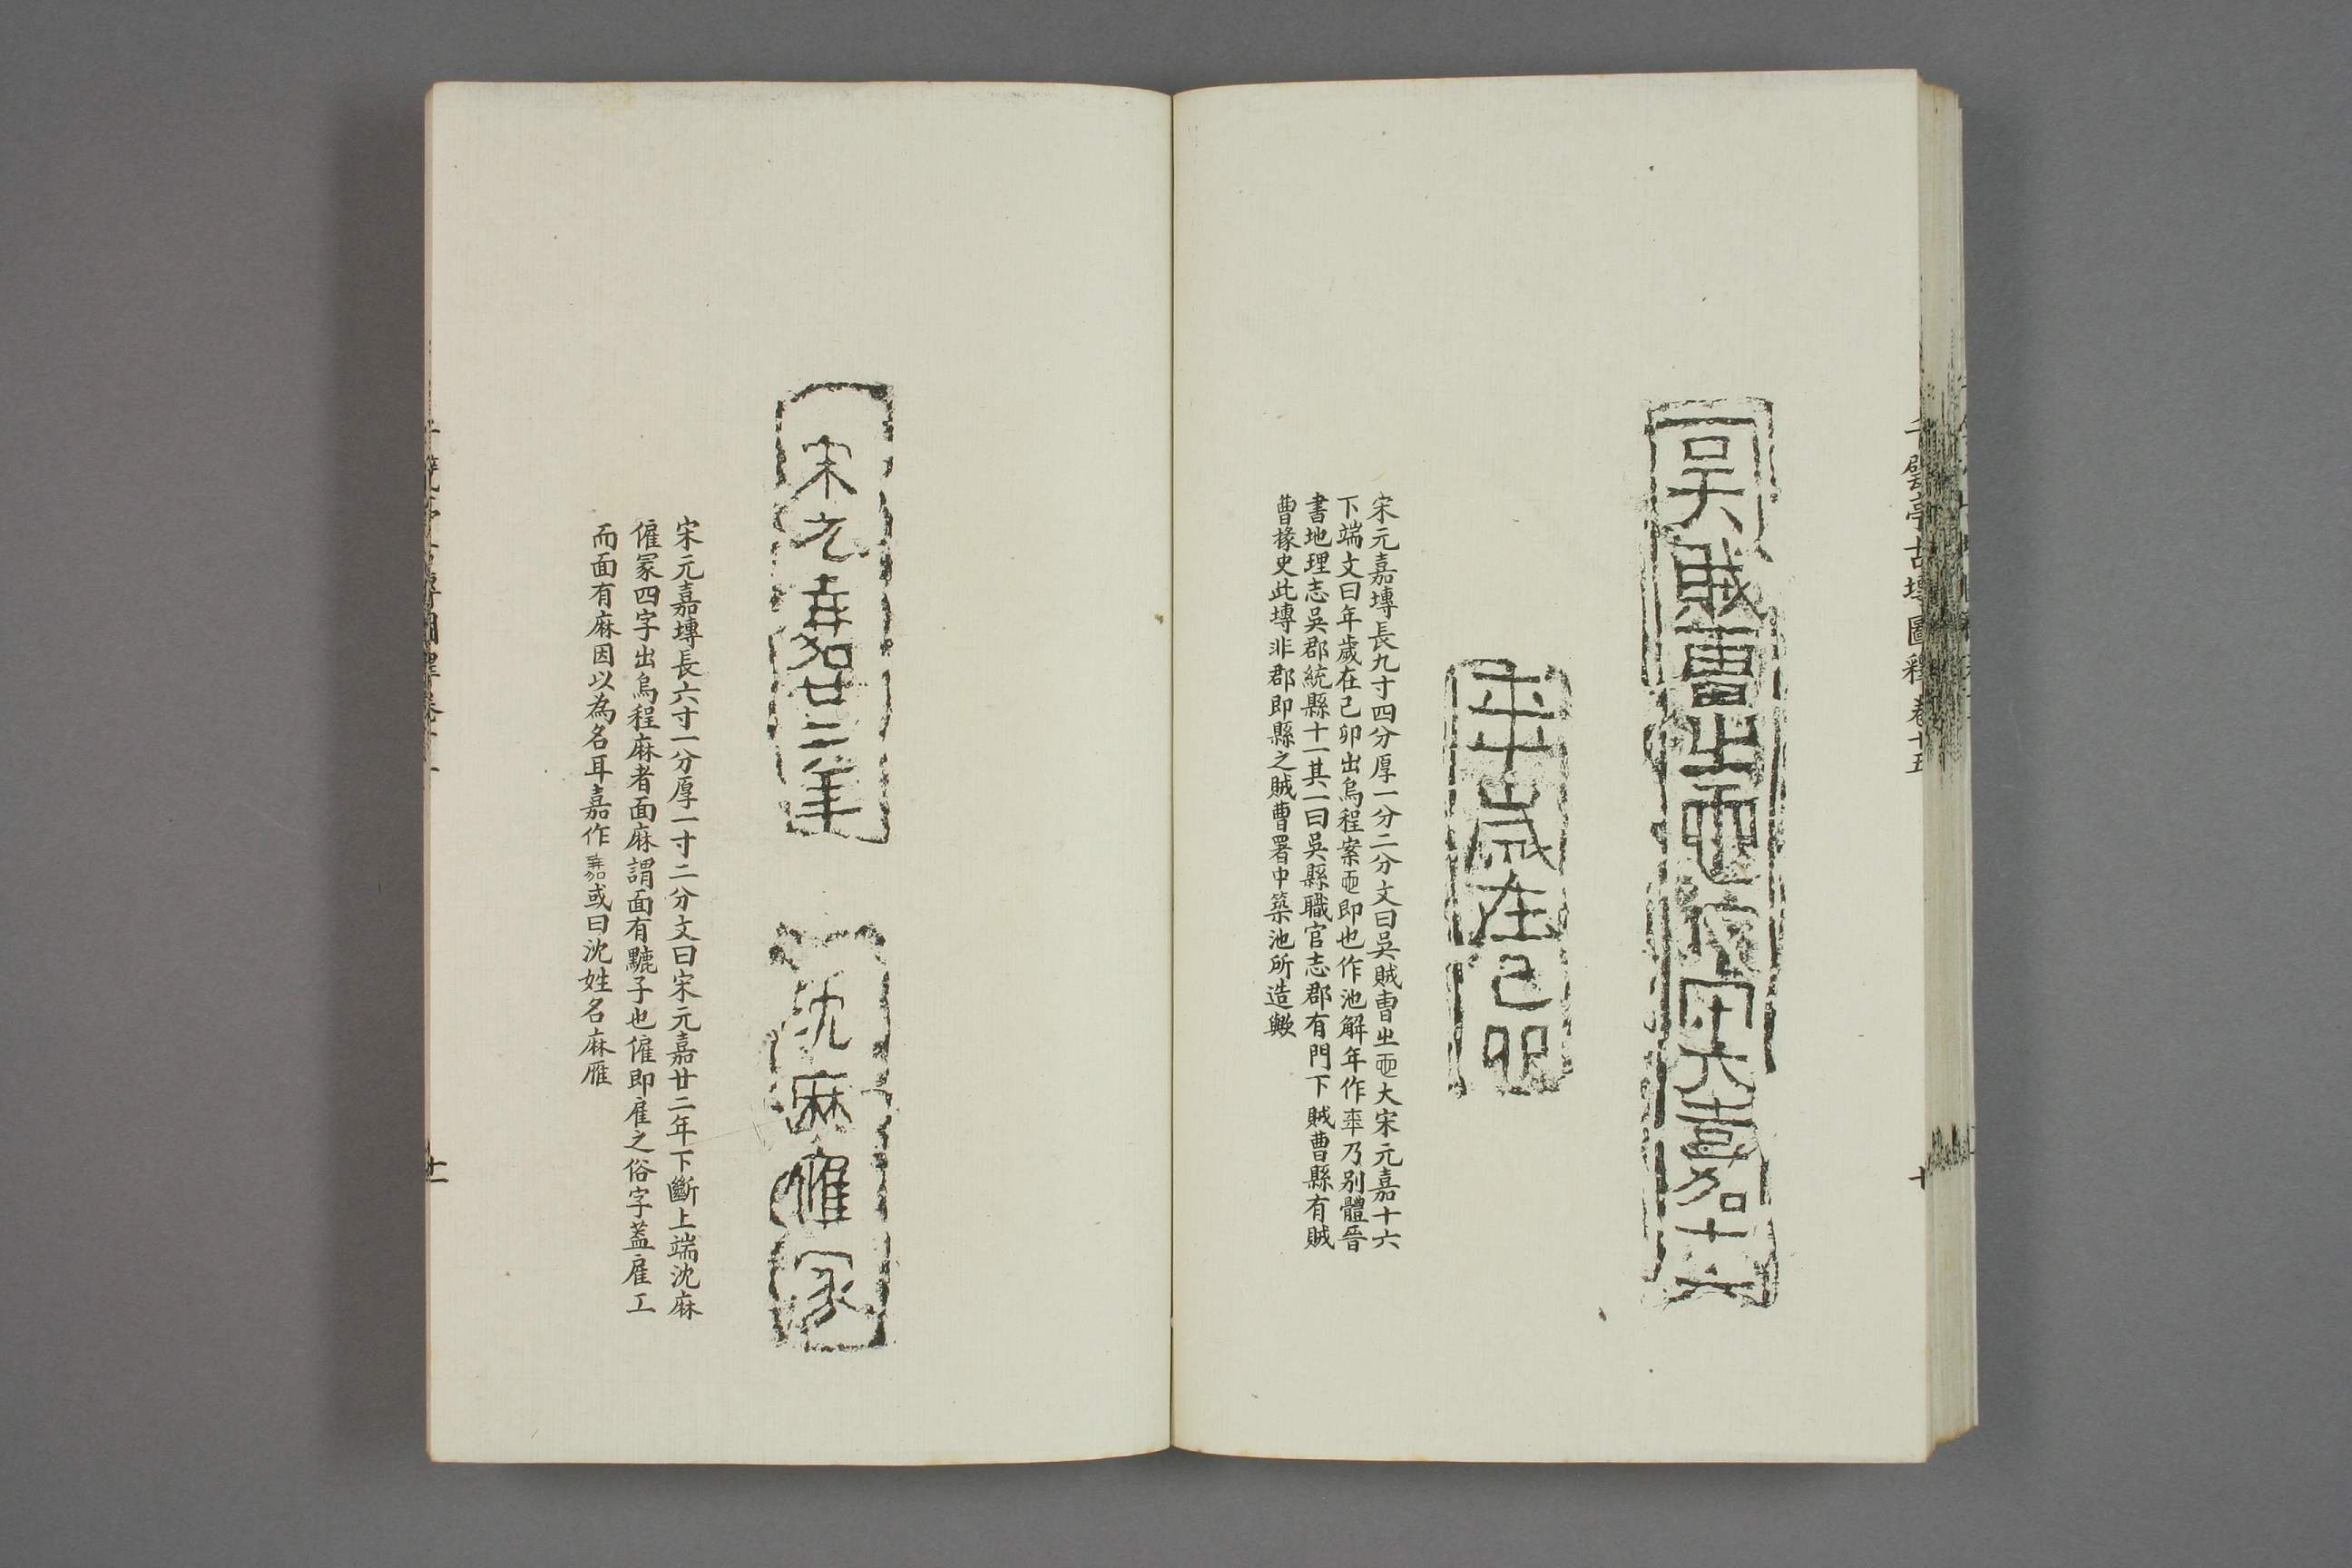 千甓亭古塼圖釋卷十五
吳賊曹㞢
大宋元嘉十六
年歲在己卯
宋元嘉塼長九寸四分厚一分二分文曰吳賊曺㞢洍大宋元嘉十六
下端文曰年歲在己卯出烏程案洍即也作池解年作秊乃别體晉
書地理志吳郡統縣十一其一曰吳縣職官志郡有門下賊曹縣有賊
曹掾史此塼非郡即縣之賊曹署中築池所造歟
宋元嘉廿二年
沈麻㒡冢
宋元嘉塼長六寸一分厚一寸二分文曰宋元嘉廿二年下斷上端沈麻
㒡冢四字出烏程麻者面麻謂面有黸子也㒡即雇之俗字葢雇工
而面有麻因以為名耳嘉作嘉或曰沈姓名麻雁
十一